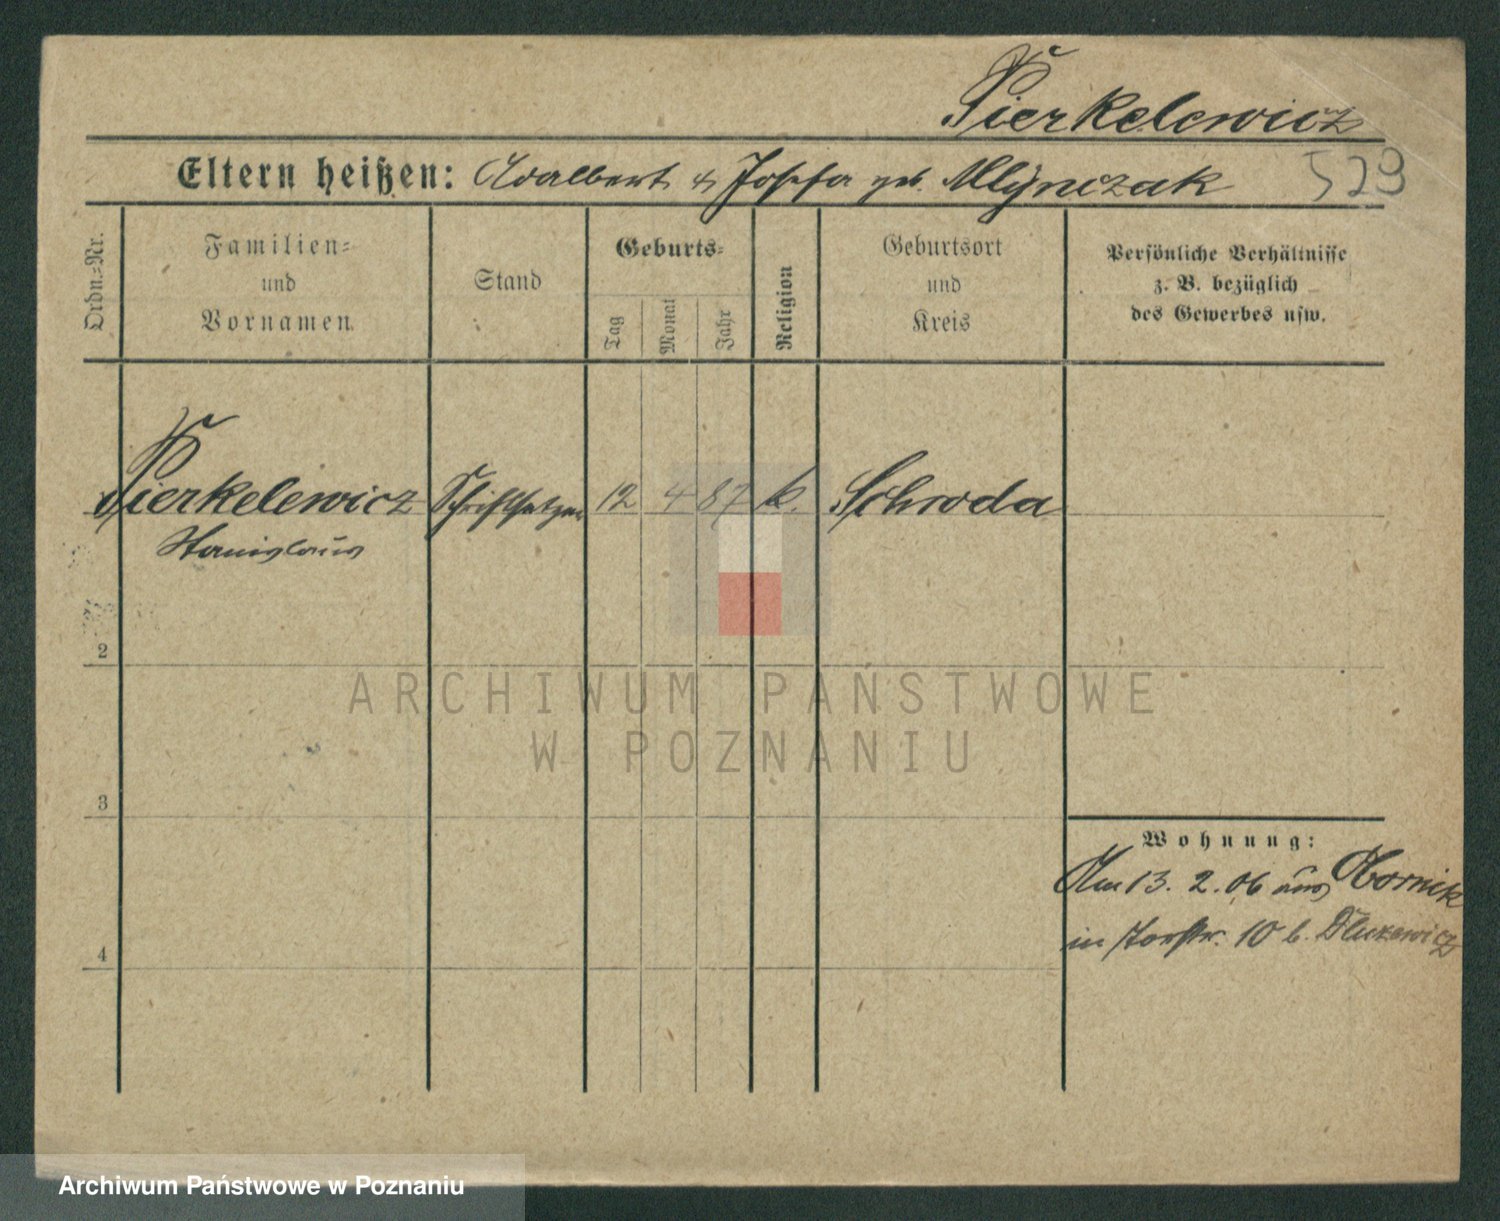 Pierkelewicz
Eltern heißen: Adalbert & Josefa geb. Mlynczak 529
Ordn.=Nr.
Familien=
und
Vornamen
Stand
Geburts=
Tag
Monat
Jahr
Religion
Geburtsort
und
Kreis
Persönliche Verhältnisse
z. B. bezüglich
des Gewerbes usw.
Pierkelewicz Schriftsetzer 12 4 87 k. Schroda
Stanislaus
2
ARCHIWUM PAŃSTWOWE
W POZNANIU
3
Wohnung:
Am 13. 2. 06 aus Obornik
in 10 b. Dlucewicz
4
Archiwum Państwowe w Poznaniu